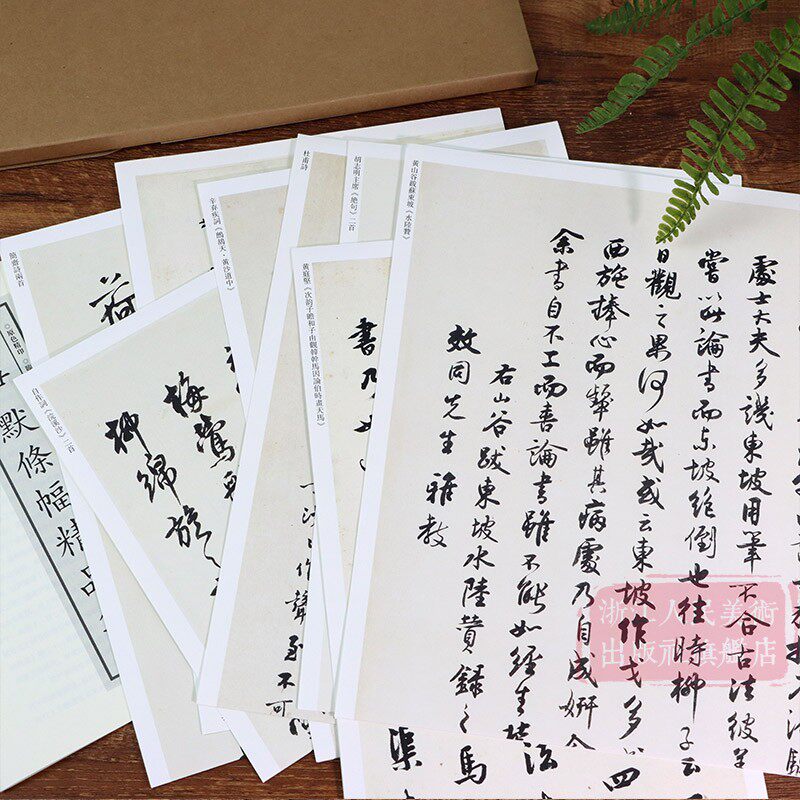 黃山谷跋蘇東坡《水陸贊》
處士大夫多譏東坡用筆不合古法彼
嘗以此論書而東坡絕倒也往時柳子云
日觀之果何如哉或云東坡作戈多
四
西施捧心而顰雖其病處乃自成妍今
余書自不工而善論書雖不能如經生
法
右山谷跋東坡水陸贊錄之馬
效同先生雅教
渠
胡志明主席《絕句》二首
杜甫詩
黃庭堅《次韵子瞻和子由觀韓幹馬因論伯時畫天馬》
書乃
作聲
不可
辛棄疾詞《鷓鴣天·黃沙道中》
簡齋詩兩首
荷
自作詞《浣溪沙》二首
梅鶯
柳綿
◎原色精印
默條幅精品
浙江人民美術
出版社旗艦店